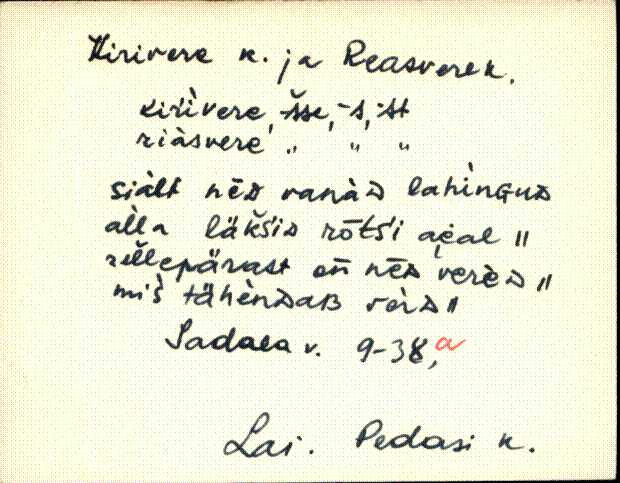 Kirivere k. ja Reasvere k.
kirìvere, -šse, -s, -st
riàsvere, „ „ „
siàlt nēᴅ vanàᴅ lahìnɢuᴅ
alla läkšiᴅ rōtsi aeal "
sellepärast on nēᴅ verèᴅ "
mis tähènᴅaʙ
Sadala v. 9-38, a
Lai. Pedasi k.